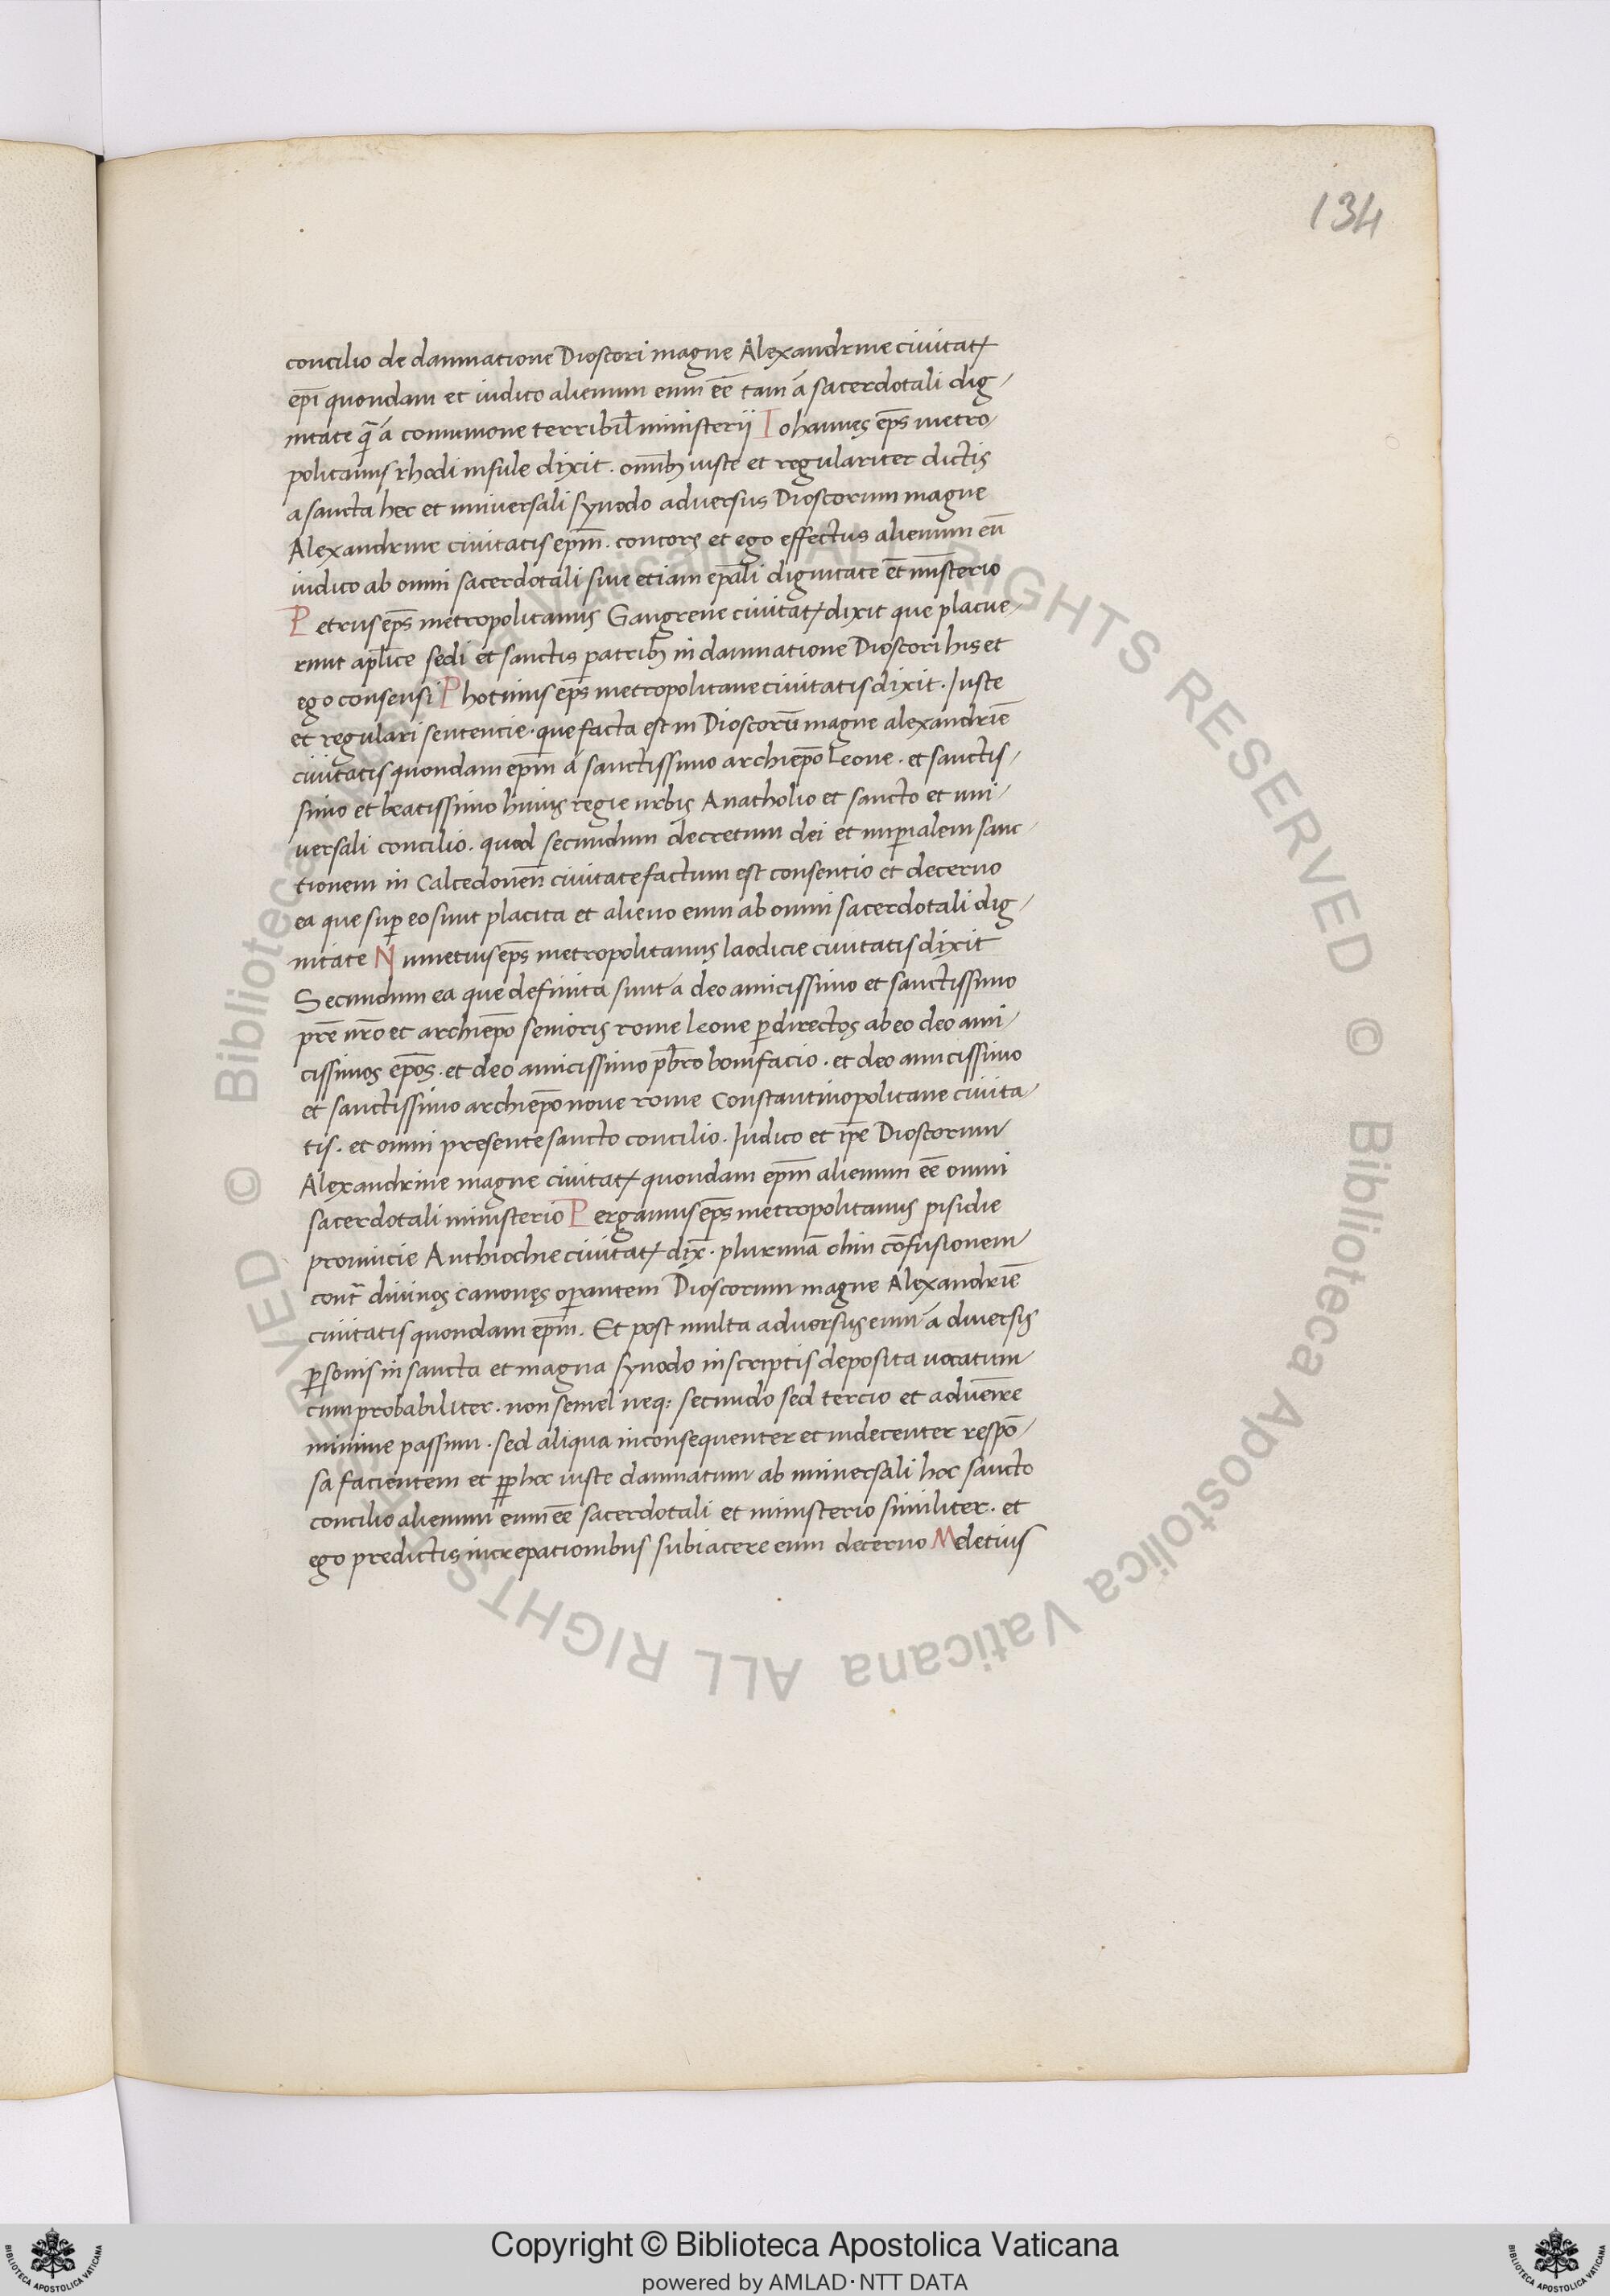 134
concilio de damnatione Dioscori magne Alexandrine ciuitatꝭ
ep̄i quondam et iudico alienum eum ēe tam á sacerdotali dig-
nitate q̄ á comunione terribil̄ ministerii Iohannes ep̄s metro-
politanus rhodi insule dixit. omībꝫ iuste et regulariter dictis
a sancta hec et uniuersali synodo aduersus Dioscorum magne
Alexandrine ciuitatis ep̄m. concors et ego effectus alienum eū
iudico ab omni sacerdotali siue etiam ep̄ali dignitate et mīsterio
Petrus ep̄s metropolitanus Gangrene ciuitatꝭ dixit que placue-
runt apl̄ice sedi et sanctis patribꝫ in damnatione Dioscori his et
ego consensi Photinus ep̄s metropolitane ciuitatis dixit. Iuste
et regulari sentencie. que facta est in Dioscorū magne alexandriē
ciuitatis quondam ep̄m á sanctissimo archiep̄o Leone. et sanctis-
simo et beatissimo huius regie urbis Anatholio et sancto et uni-
uersali concilio. quod secundum decretum dei et imꝑialem sanc-
tionem in Calcedoneñ ciuitate factum est consentio et decerno
ea que suꝑ eo sunt placita et alieno eum ab omni sacerdotali dig-
nitate Nunnetius ep̄s metropolitanus laodicie ciuitatis dixit
Secundum ea que definita sunt á deo amicissimo et sanctissimo
pr̄e nr̄o et archiep̄o senioris rome leone ꝑ directos ab eo deo ami-
cissimos ep̄os. et deo amicissimo pb̄ro bonifacio. et deo amicissimo
et sanctissimo archiep̄o noue rome Constantinopolitane ciuita-
tis. et omni presente sancto concilio. Iudico et ip̄e Dioscorum
Alexandrine magne ciuitatꝭ quondam ep̄m alienum ēe omni
sacerdotali ministerio Pergamius ep̄s metropolitanus pisidie
prouincie Anthiochie ciuitatꝭ dix̄. plurimā olim cōfusionem
cont̄ diuinos canones oꝑantem Dioscorum magne Alexandriē
ciuitatis quondam ep̄m. Et post multa aduersus eum á diuersis
ꝑsonis in sancta et magna synodo inscriptis deposita uocatum
cum probabiliter. non semel neqꝫ secundo sed tercio et aduenire
minime passum. sed aliqua inconsequenter et indecenter respō-
sa facientem et ꝓp hoc iuste damnatum ab uniuersali hoc sancto
concilio alienum eum ēe sacerdotali et ministerio similiter. et
ego predictis increpationibus subiacere eum decerno Meletius
© Biblioteca Apostolica Vaticana ALL RIGHTS RESERVED
© Biblioteca Apostolica Vaticana ALL RIGHTS RESERVED
Copyright © Biblioteca Apostolica Vaticana
powered by AMLAD·NTT DATA
BIBLIOTECA APOSTOLICA VATICANA
BIBLIOTECA APOSTOLICA VATICANA